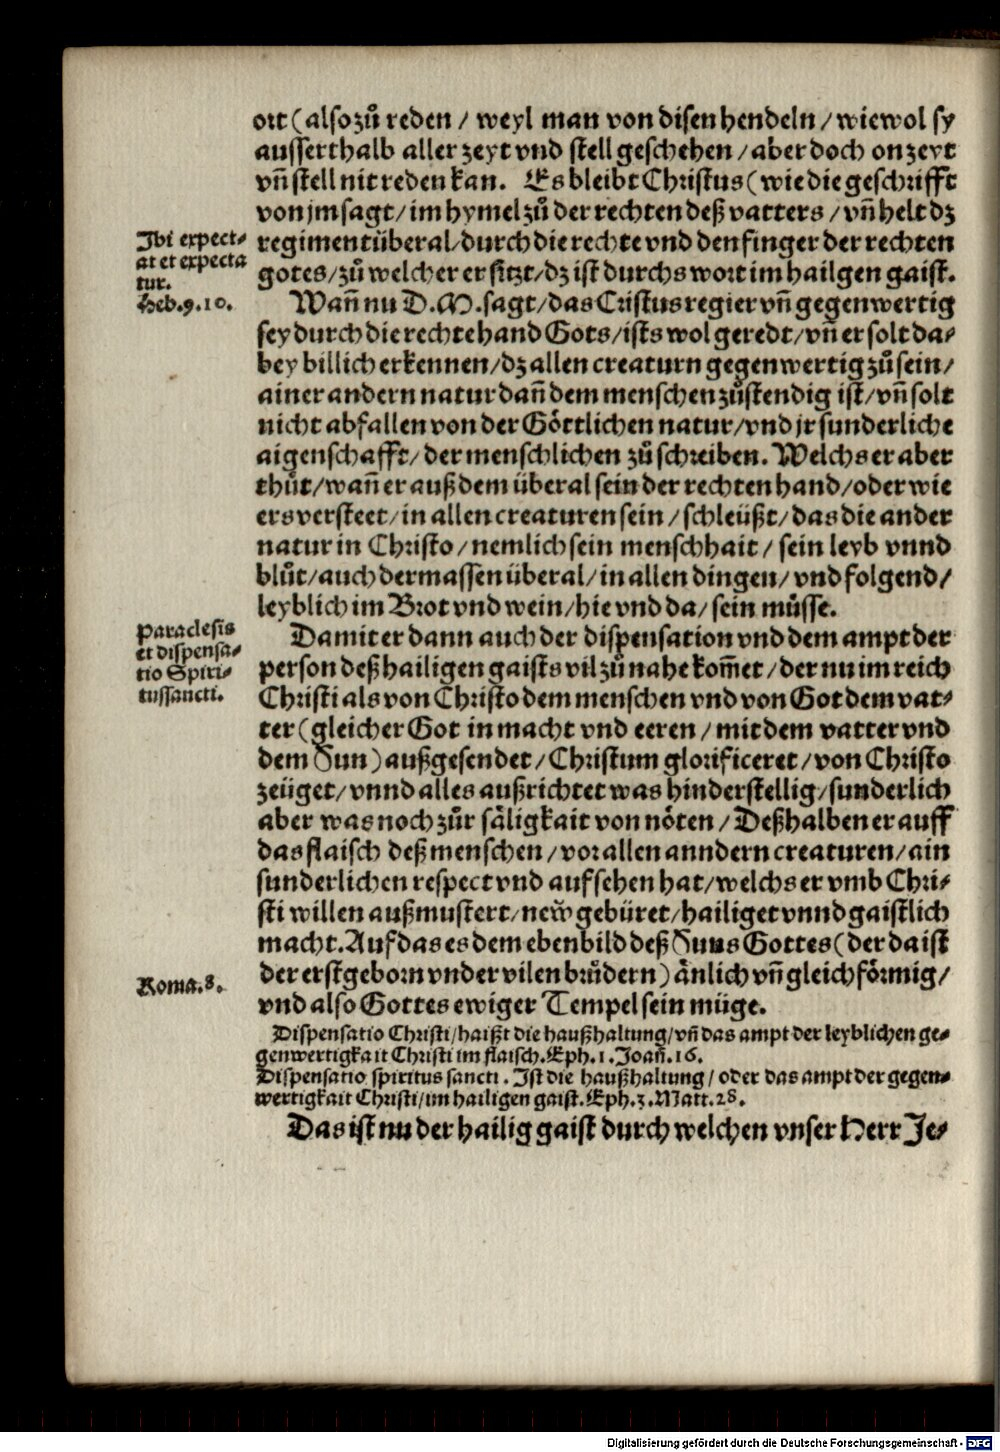 ort (also zů reden / weyl man von disen hendeln / wiewol sy
ausserthalb aller zeyt vnd stell geschehen / aber doch on zeyt
vñ stell nit reden kan. Es bleibt Christus (wie die geschrifft
von jm sagt / im hymel zů der rechten deß vatters / vñ helt dz
regiment überal / durch die rechte vnd den finger der rechten
gotes / zů welcher er sitzt / dz ist durchs wort im hailgen gaist.
Ibi expect-
at et expecta
tur.
Heb.9.10.
Wañ nu D.M. sagt / das Cristus regier vñ gegenwertig
sey durch die rechte hand Gots / ists wol geredt / vñ er solt da-
bey billich erkennen / dz allen creaturn gegenwertig zů sein /
ainer andern natur dañ dem menschen zůstendig ist / vñ solt
nicht abfallen von der Göttlichen natur / vnd jr sunderliche
aigenschafft / der menschlichen zů schreiben. Welchs er aber
thůt / wañ er auß dem überal sein der rechten hand / oder wie
ers versteet / in allen creaturen sein / schleüßt / das die ander
natur in Christo / nemlich sein menschhait / sein leyb vnnd
blůt / auch dermassen überal / in allen dingen / vnd folgend /
leyblich im Brot vnd wein / hie vnd da / sein můsse.
Paraclesis
et dispensa-
tio Spiri-
tussancti.
Damit er dann auch der dispensation vnd dem ampt der
person deß hailigen gaists vil zů nahe kom̃et / der nu im reich
Christi als von Christo dem menschen vnd von Got dem vat-
ter (gleicher Got in macht vnd eeren / mit dem vatter vnd
dem Sun) außgesendet / Christum glorificeret / von Christo
zeüget / vnnd alles außrichtet was hinderstellig / sunderlich
aber was noch zůr säligkait von nöten / Deßhalben er auff
das flaisch deß menschen / vor allen anndern creaturen / ain
sunderlichen respect vnd aufsehen hat / welchs er vmb Chri-
sti willen außmustert / new̌ gebüret / hailiget vnnd gaistlich
macht. Auf das es dem ebenbild deß Suns Gottes (der da ist
der erstgeborn vnder vilen brůdern) änlich vñ gleichförmig /
vnd also Gottes ewiger Tempel sein müge.
Roma.8.
Dispensatio Christi / haißt die haußhaltung / vñ das ampt der leyblichen ge-
genwertigkait Christi im flaisch. Eph.1. Joañ.16.
Dispensatio spiritus sancti. Ist die haußhaltung / oder das ampt der gegen-
wertigkait Christi / im hailigen gaist. Eph.3. Matt.28.
Das ist nu der hailig gaist durch welchen vnser Herr Je-
Digitalisierung gefördert durch die Deutsche Forschungsgemeinschaft - DFG